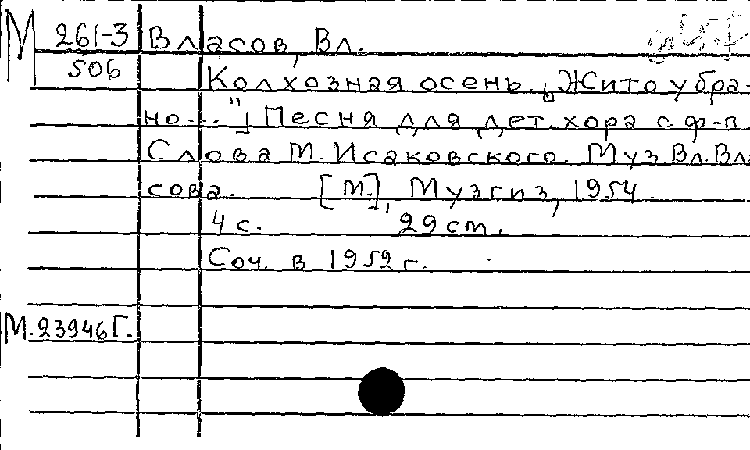 М 261-3 Власов, Вл.
506
Колхозная осень. „Жито убра-
но..."] Песня для дет. хора с ф-п.
Слова М. Исаковского. Муз Вл. Вла
сова. [М.], Музгиз, 1954
4 с. 29 cm.
Соч. в 1952 г.
М.23946Г.